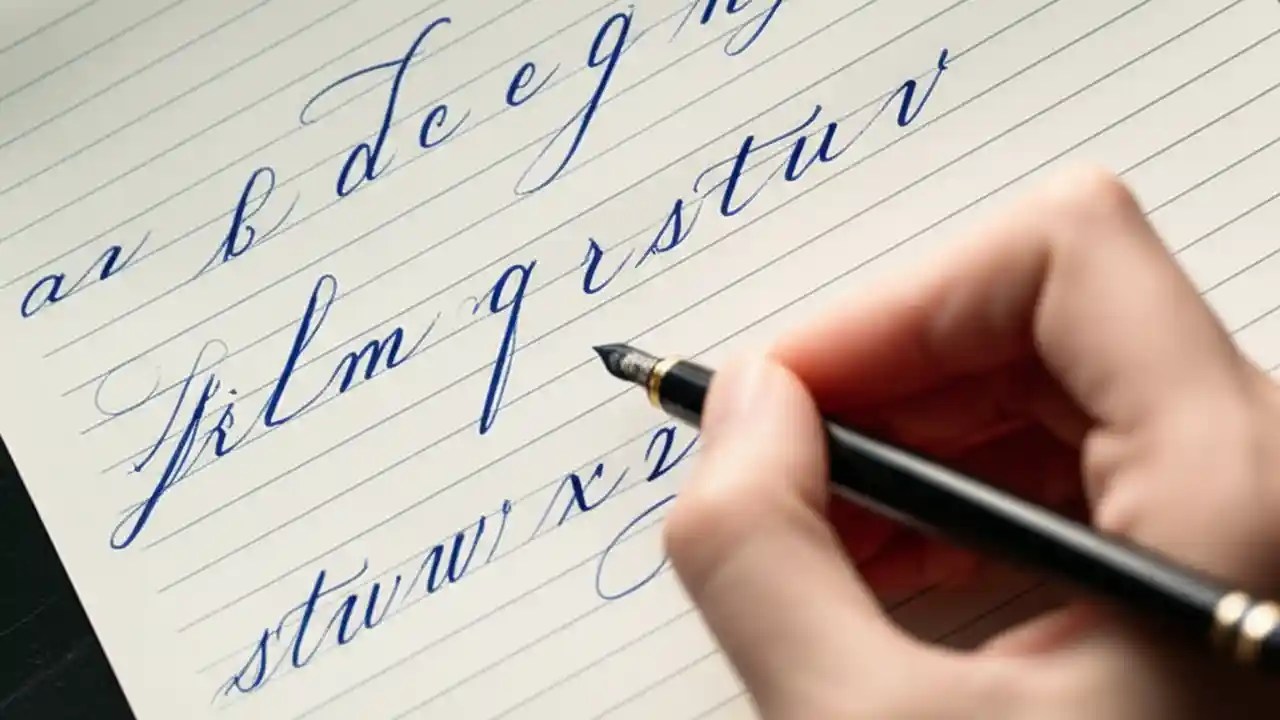 av b d c e g n
film qrstuv
stuw x z